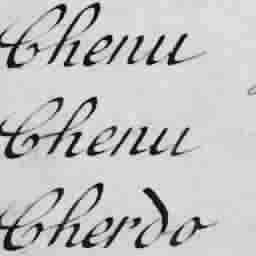 Chenu
Chenu
Cherdo